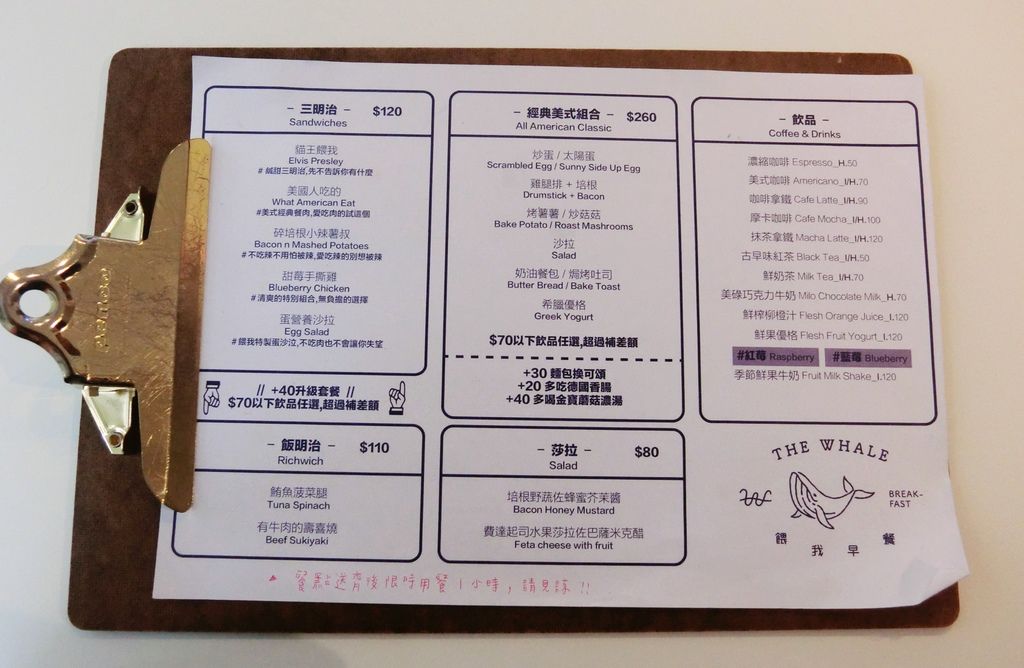 - 三明治 - $120
Sandwiches
貓王餵我
Elvis Presley
# 鹹甜三明治,先不告訴你有什麼
美國人吃的
What American Eat
#美式經典餐肉,愛吃肉的試這個
碎培根小辣薯叔
Bacon n Mashed Potatoes
# 不吃辣不用怕被辣,愛吃辣的別想被辣
甜莓手撕雞
Blueberry Chicken
# 清爽的特別組合,無負擔的選擇
蛋營養沙拉
Egg Salad
# 餵我特製蛋沙拉,不吃肉也不會讓你失望
// +40升級套餐 //
$70以下飲品任選,超過補差額
- 飯明治 - $110
Richwich
鮪魚菠菜腿
Tuna Spinach
有牛肉的壽喜燒
Beef Sukiyaki
- 經典美式組合 - $260
All American Classic
炒蛋 / 太陽蛋
Scrambled Egg / Sunny Side Up Egg
雞腿排 + 培根
Drumstick + Bacon
烤薯薯 / 炒菇菇
Bake Potato / Roast Mashrooms
沙拉
Salad
奶油餐包 / 焗烤吐司
Butter Bread / Bake Toast
希臘優格
Greek Yogurt
$70以下飲品任選,超過補差額
+30 麵包換可頌
+20 多吃德國香腸
+40 多喝金寶蘑菇濃湯
- 莎拉 - $80
Salad
培根野蔬佐蜂蜜芥茉醬
Bacon Honey Mustard
費達起司水果莎拉佐巴薩米克醋
Feta cheese with fruit
- 飲品 -
Coffee & Drinks
濃縮咖啡 Espresso_H.50
美式咖啡 Americano_I/H.70
咖啡拿鐵 Cafe Latte_I/H.90
摩卡咖啡 Cafe Mocha_I/H.100
抹茶拿鐵 Macha Latte_I/H.120
古早味紅茶 Black Tea_I/H.50
鮮奶茶 Milk Tea_I/H.70
美祿巧克力牛奶 Milo Chocolate Milk_H.70
鮮榨柳橙汁 Flesh Orange Juice_I.120
鮮果優格 Flesh Fruit Yogurt_I.120
#紅莓 Raspberry #藍莓 Blueberry
季節鮮果牛奶 Fruit Milk Shake_I.120
THE WHALE
BREAK-
FAST
餵我早餐
餐點送齊後限時用餐1小時,請見諒!!